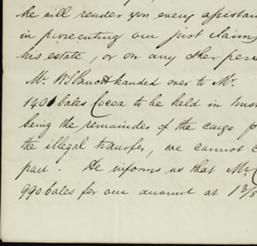 he will render you every assistan
in prosecuting our just claims
his estate, or on any other pers
Mr. handed over to Mr.
1400 bales Cocoa to be held in trus
being the remainder of the cargo p
the illegal transfer, we cannot c
part. He informs us that Mr C
990 bales for our account at 1 3/8